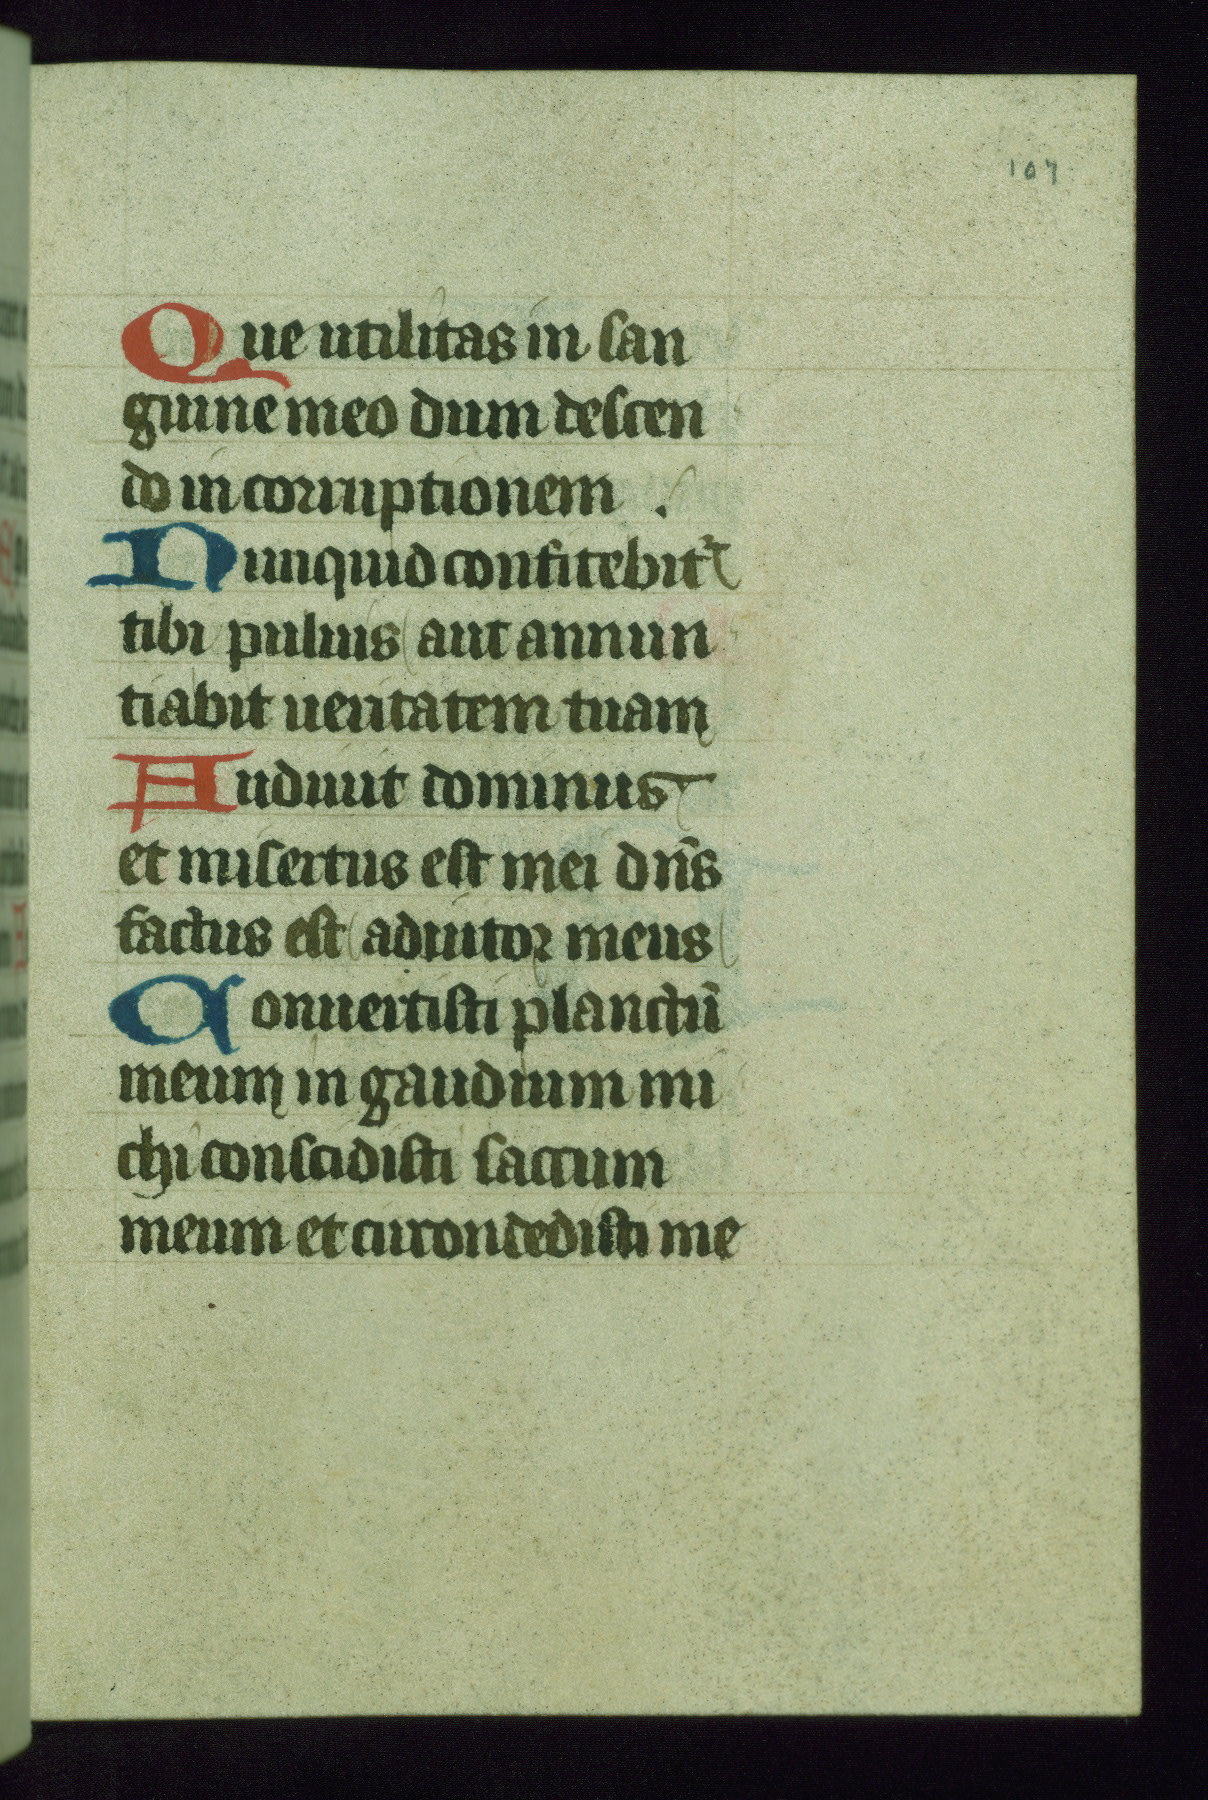 107
Que utilitas in san
guine meo dum descen
do in corruptionem .
Nunquid confitebit᷑
tibi puluis aut annun
tiabit ueritatem tuam
Audiuit dominus
et misertus est mei dn̄s
factus est adiutor meus
Conuertisti planctū
meum in gaudium mi
chi conscidisti saccum
meum et circondedisti me